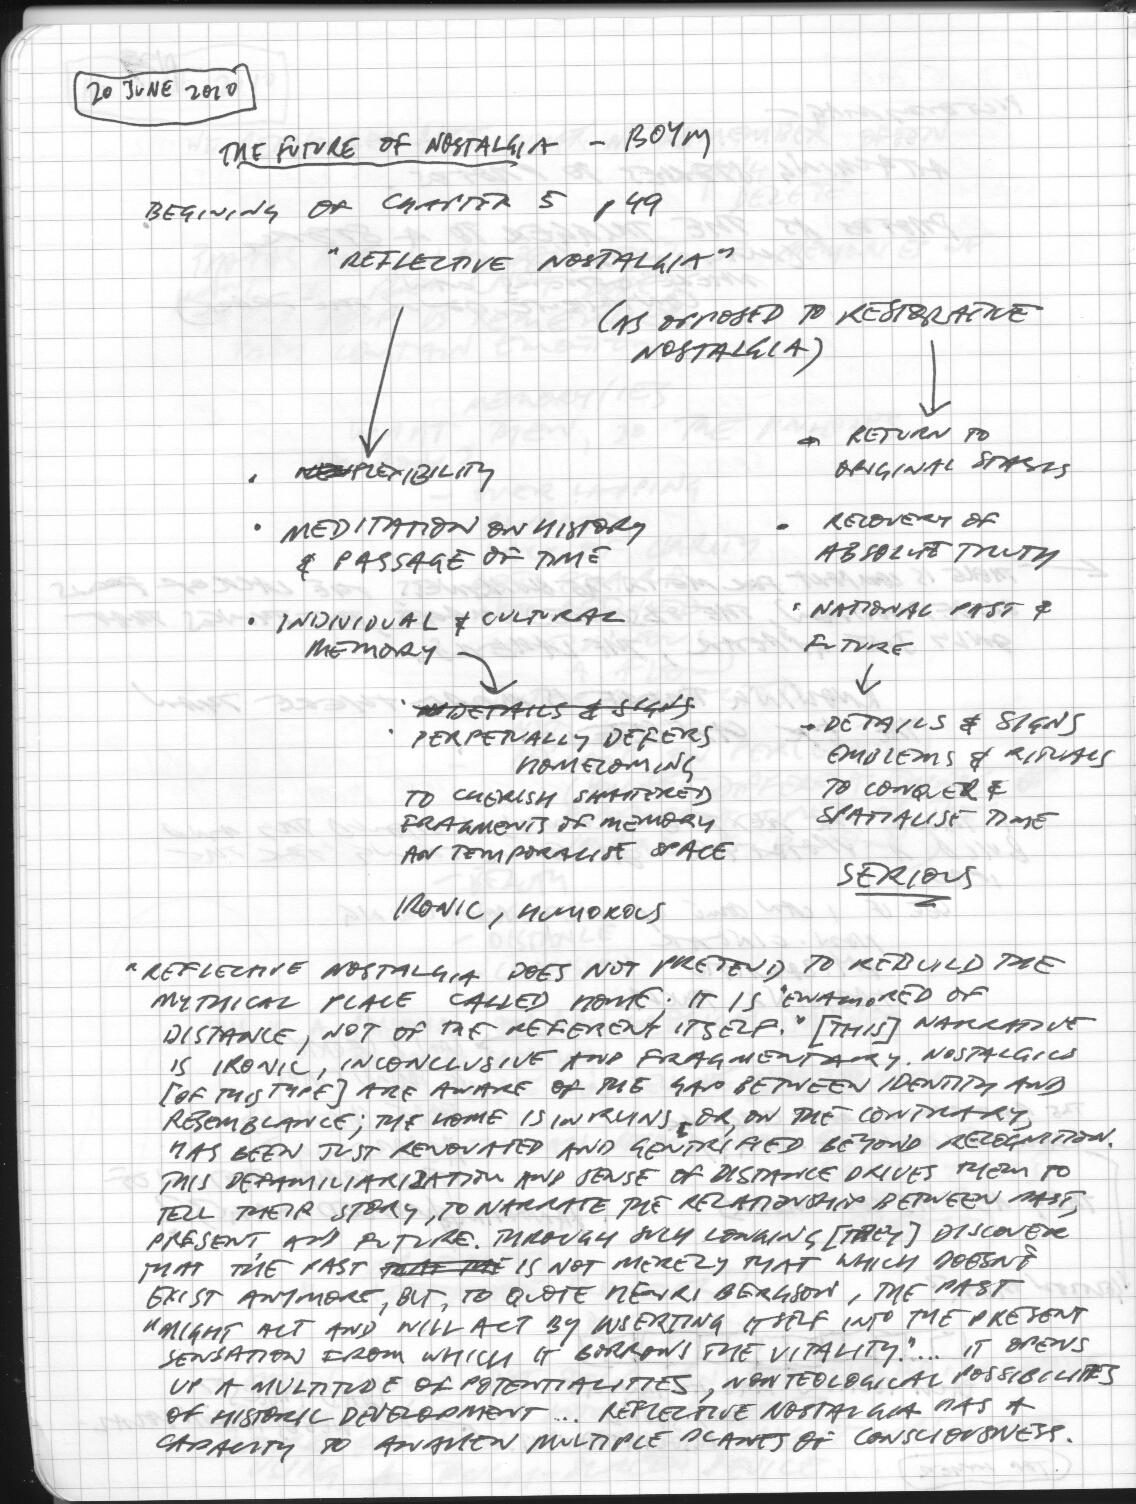 20 JUNE 2010
THE FUTURE OF NOSTALGIA - BOYM
BEGINING OF CHAPTER 5 p 49
"REFLECTIVE NOSTALGIA"
(AS OPPOSED TO RESTORATIVE
NOSTALGIA)
• FLEXIBILITY
• MEDITATION ON HISTORY
& PASSAGE OF TIME
• INDIVIDUAL & CULTURAL
MEMORY
• DETAILS & SIGNS
• PERPETUALLY DEFERS
HOMECOMING
TO CHERISH SHATTERED
FRAGMENTS OF MEMORY
AN TEMPORALISE SPACE
IRONIC, HUMOROUS
• RETURN TO
ORIGINAL STASIS
• RECOVERY OF
ABSOLUTE TRUTH
• NATIONAL PAST &
FUTURE
• DETAILS & SIGNS
EMBLEMS & RITUALS
TO CONQUER &
SPATIALISE TIME
SERIOUS
"REFLECTIVE NOSTALGIA DOES NOT PRETEND TO REBUILD THE
MYTHICAL PLACE CALLED HOME; IT IS "ENAMORED OF
DISTANCE, NOT OF THE REFERENT ITSELF." [THIS] NARRATIVE
IS IRONIC, INCONCLUSIVE AND FRAGMENTARY. NOSTALGICS
[OF THIS TYPE] ARE AWARE OF THE GAP BETWEEN IDENTITY AND
RESEMBLANCE; THE HOME IS IN RUINS, OR, ON THE CONTRARY,
HAS BEEN JUST RENOVATED AND GENTRIFIED BEYOND RECOGNITION.
THIS DEFAMILIARIZATION AND SENSE OF DISTANCE DRIVES THEM TO
TELL THEIR STORY, TO NARRATE THE RELATIONSHIP BETWEEN PAST,
PRESENT AND FUTURE. THROUGH SUCH LONGING [THEY] DISCOVER
THAT THE PAST THAT THE IS NOT MERELY THAT WHICH DOESN'T
EXIST ANYMORE, BUT, TO QUOTE HENRI BERGSON, THE PAST
"MIGHT ACT AND WILL ACT BY INSERTING ITSELF INTO THE PRESENT
SENSATION FROM WHICH IT BORROWS THE VITALITY." ... IT OPENS
UP A MULTITUDE OF POTENTIALITIES, NONTEOLOGICAL POSSIBILITIES
OF HISTORIC DEVELOPMENT ... REFLECTIVE NOSTALGIA HAS A
CAPACITY TO AWAKEN MULTIPLE PLANES OF CONSCIOUSNESS.